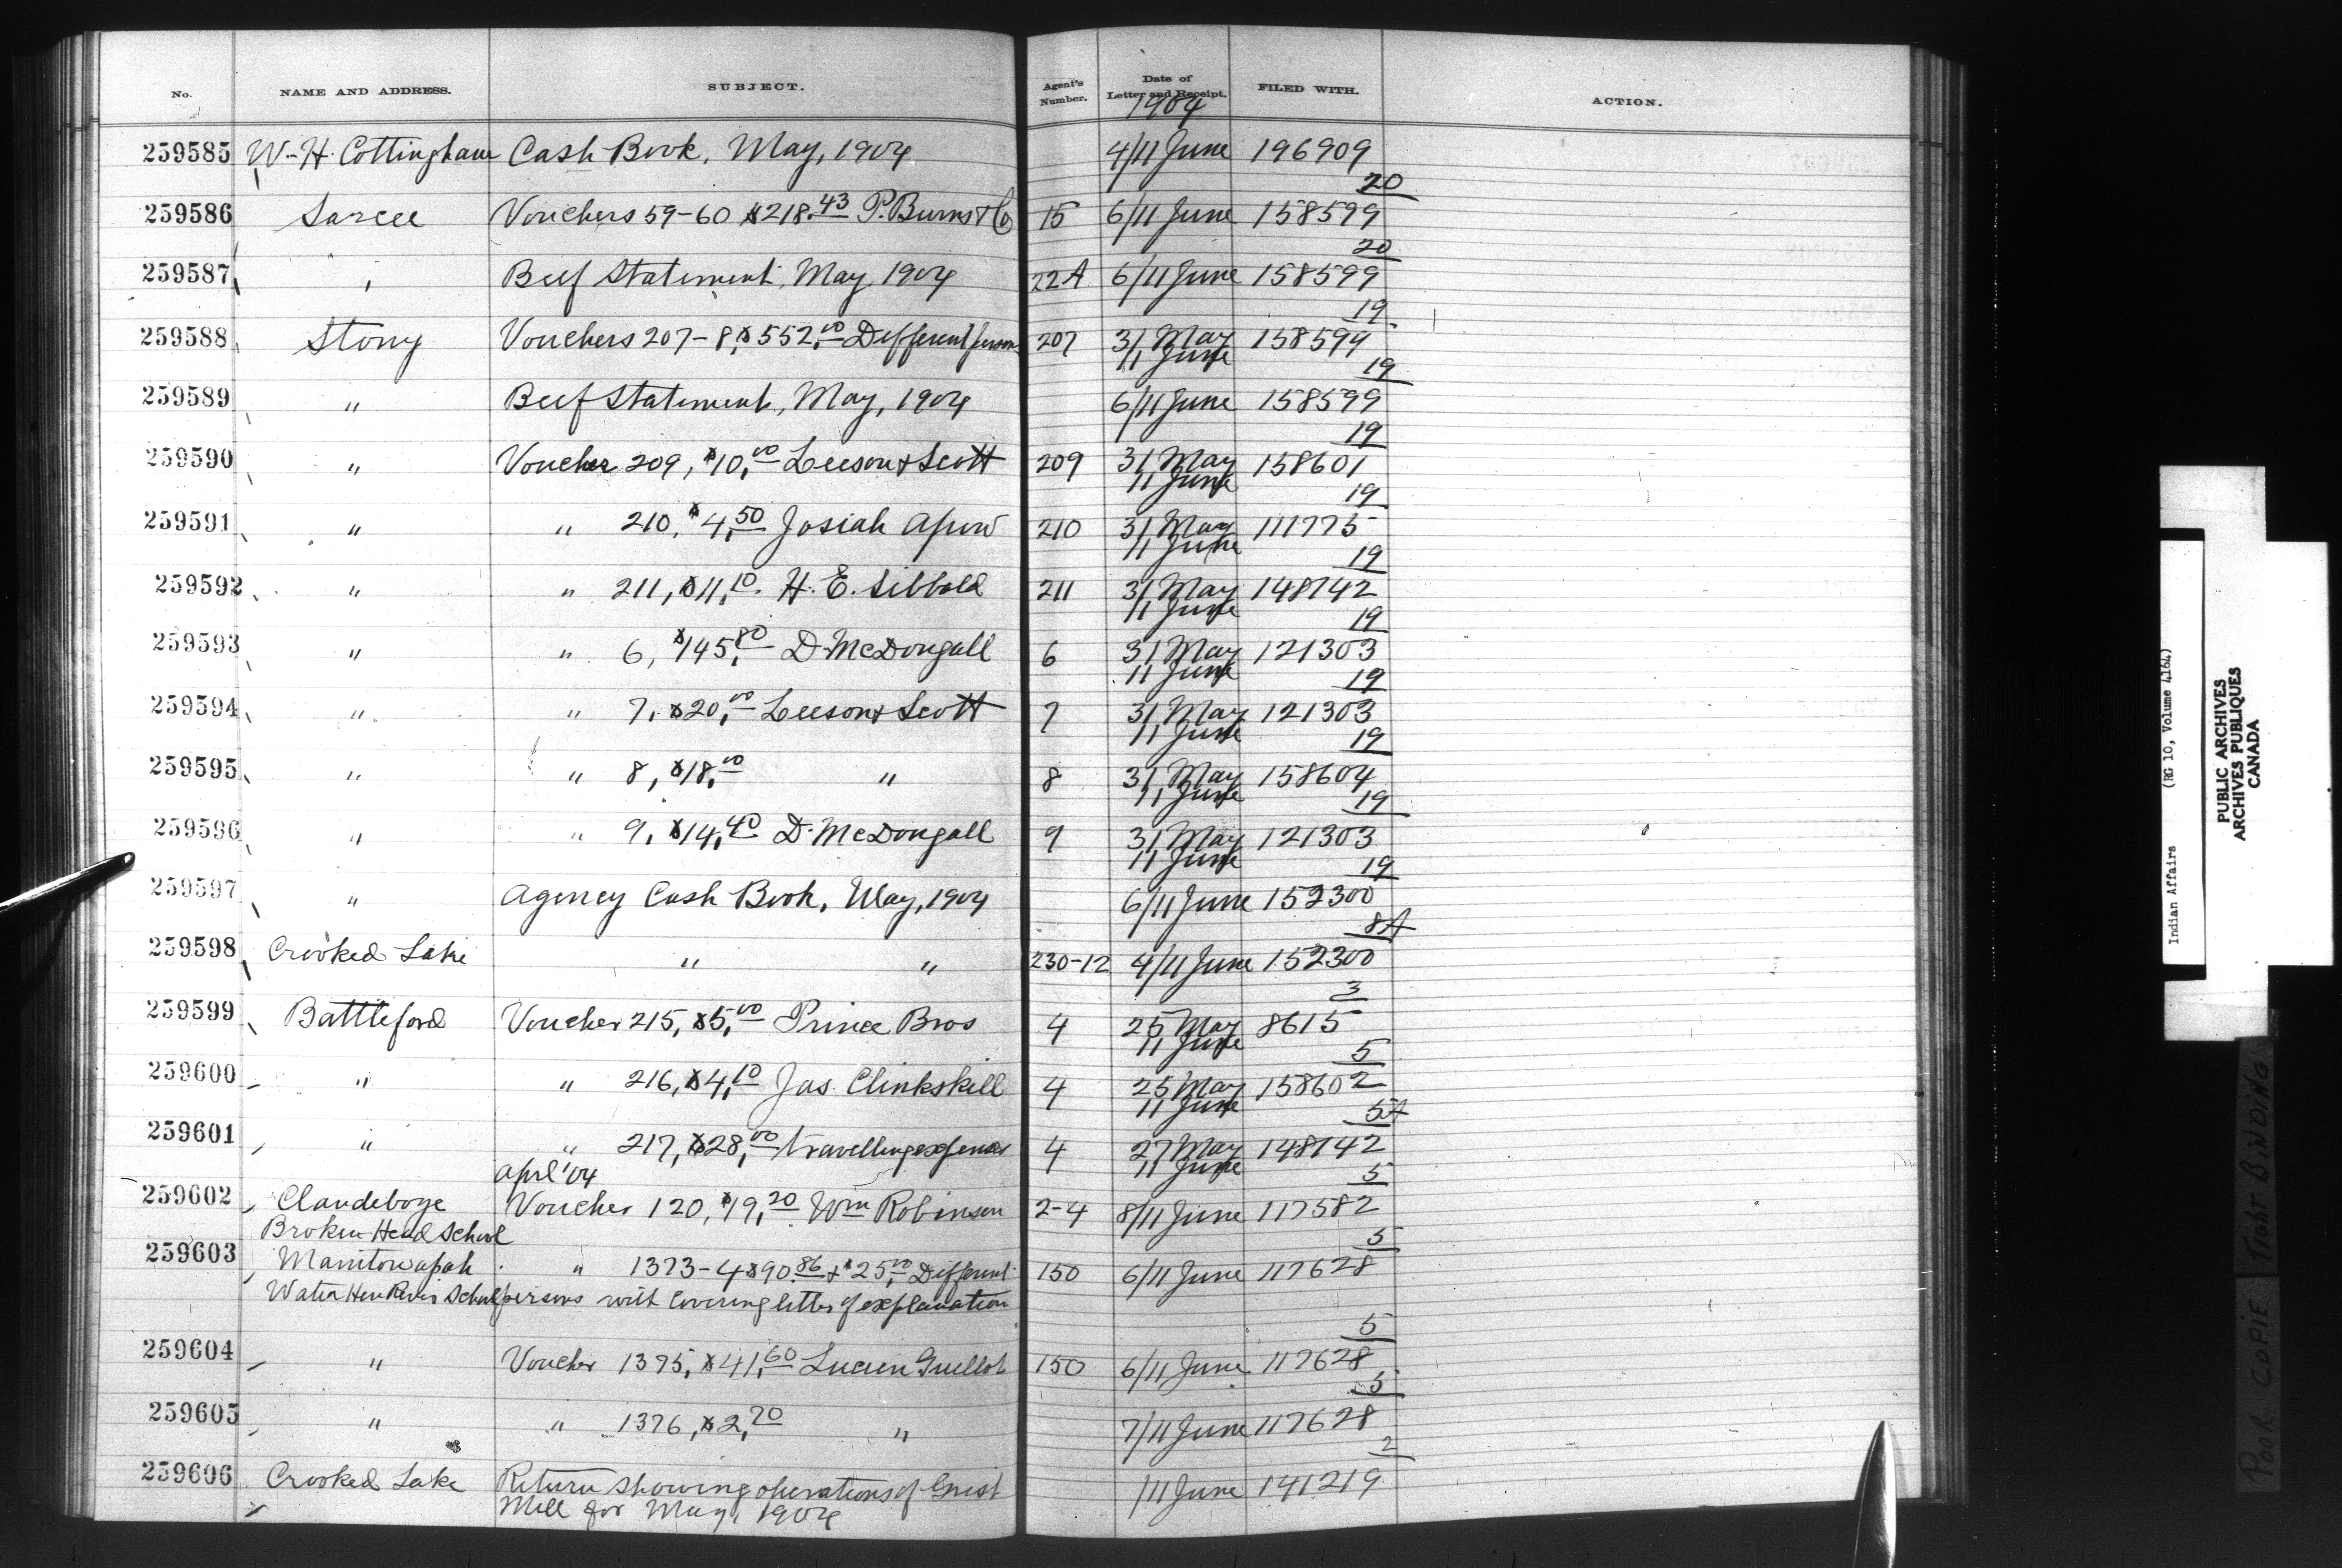 No. NAME AND ADDRESS. SUBJECT. Agent's Number. Date of Letter and Receipt. FILED WITH. ACTION.
1904
259585 W. H. Cottingham Cash Book, May, 1904 4/11 June 196909
20
259586 Sarcee Vouchers 59-60 $218.43 P. Burns & Co 15 6/11 June 158599
20
259587 " Beef Statement, May 1904 22A 6/11 June 158599
19
259588 Stony Vouchers 207-8, $552.00 Different persons 207 31 May 158599
11 June
19
259589 " Beef Statement, May, 1904 6/11 June 158599
19
259590 " Voucher 209, $10.00 Leeson & Scott 209 31 May 158601
11 June
19
259591 " " 210, $4.50 Josiah 210 31 May 111775
11 June
19
259592 " " 211, $11.10 H. E. Sibbald 211 31 May 148142
11 June
19
259593 " " 6, $145.80 D. McDougall 6 31 May 121303
11 June
19
259594 " " 7, $20.00 Leeson & Scott 7 31 May 121303
11 June
19
259595 " " 8, $18.00 " 8 31 May 158604
11 June
19
259596 " " 9, $14.40 D. McDougall 9 31 May 121303
11 June
19
259597 " Agency Cash Book, May, 1904 6/11 June 152300
8A
259598 Crooked Lake " " 230-12 4/11 June 152300
3
259599 Battleford Voucher 215, $5.00 Prince Bros 4 25 May 8615
11 June
5
259600 " " 216, $4.10 Jas. Clinkskill 4 25 May 158602
11 June
5A
259601 " " 217, $28.00 travelling expenses 4 27 May 148142
11 June
April '04
5
259602 Clandeboye Voucher 120, $19.20 Wm Robinson 2-4 8/11 June 117582
Broken Head School
5
259603 Manitowapah " 1373-4 $90.86 + $25.00 Different 150 6/11 June 117628
Water Hen River School persons with covering letter of explanation
5
259604 " Voucher 1375, $41.60 Lucien Guillot 150 6/11 June 117628
5
259605 " " 1376, $2.70 " 7/11 June 117628
2
259606 Crooked Lake Return showing operations of Grist /11 June 141219
Mill for May, 1904
Indian Affairs (RG 10, Volume 4164)
PUBLIC ARCHIVES
ARCHIVES PUBLIQUES
CANADA
POOR COPIE TIGHT BINDING